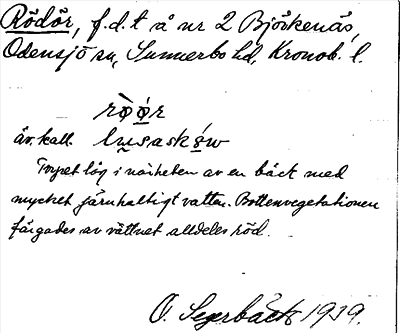 Rödör, f.d. t å nr 2 Björkenäs,
Odensjö sn, Sunnerbo hd, Kronob. l.
rò̱ǫ́r
äv. kall. lusasków
Torpet låg i närheten av en bäck med
mycket järnhaltigt vatten. Bottenvegetationen
färgades av vattnet alldeles röd.
O. Segerbäck 1939.